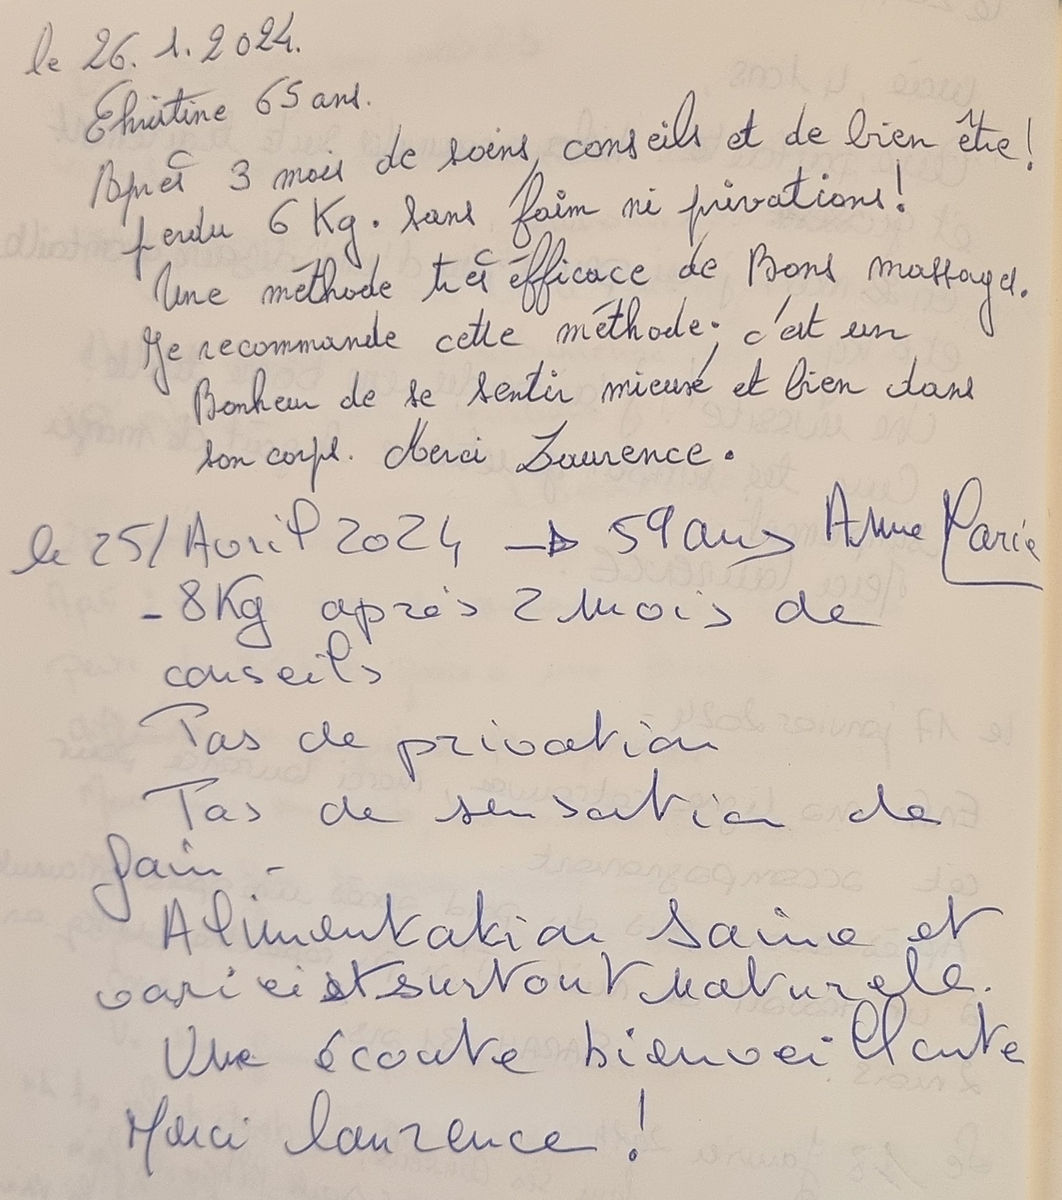 le 26. 1. 2024.
Christine 65 ans.
Après 3 mois de soins, conseils et de bien être!
perdu 6 Kg. sans faim ni privations!
Une méthode très éfficace de Bons massages.
Je recommande cette méthode; c'est un
Bonheur de se sentir mieux et bien dans
son corps. Merci Laurence.
le 25/Avril 2024 → 59 ans Anne Marie
- 8Kg après 2 mois de
conseils
Pas de privation
Pas de sensation de
faim -
Alimentation saine et
variée et surtout naturele.
Une écoute bienveillante
Merci laurence !